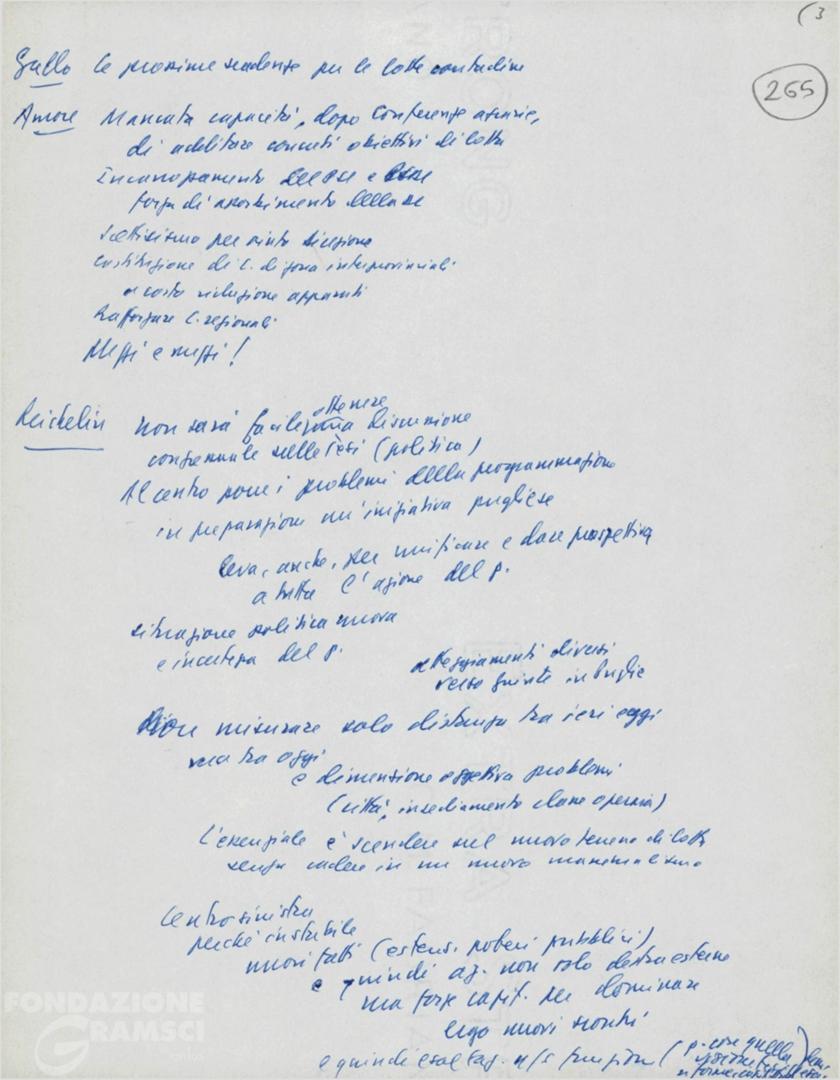 (3
265
Gullo le prossime scadenze per le lotte contadine
Amore Mancata capacità, dopo Conferenze agrarie,
di additare concreti obiettivi di lotta
Incanopamento del
forza di assorbimento della
Scetticismo per
costituzione di C. di zona interprovinciali
a costo riduzione apparati
Rafforzare C. regionali
Mezzi e mezzi!
Reichlin Non sarà facile ottenere una discussione
congressuale sulle Tesi (politica)
Al centro pone i problemi della programmazione
in preparazione un'iniziativa pugliese
leva, anche, per unificare e dare prospettiva
a tutta l'azione del p.
situazione politica nuova
e incertezza del p.
atteggiamenti diversi
verso giunte in Puglie
Non misurare solo distanza tra ieri e oggi
ma tra oggi
e dimensione oggettiva problemi
(città, insediamento classe operaia)
L'essenziale è scendere sul nuovo terreno di lotta
senza cadere in un nuovo massimalismo
Centrosinistra
perché instabile
nuovi fatti (estens. poteri pubblici)
e quindi az. non solo destra esterne
ma forze capit. per dominare
ergo nuovi scontri
e quindi
FONDAZIONE
GRAMSCI